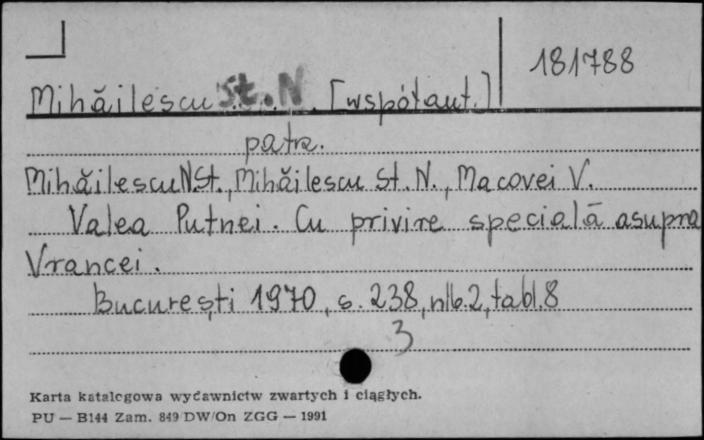 181788
Mihăilescu St. N. [współaut.]
patrz.
Mihăilescu N. St., Mihăilescu St. N., Macovei V.
Valea Putnei. Cu privire specială asupra
Vrancei.
București 1970, s. 238, nlb. 2, tabl. 8
3
Karta katalogowa wydawnictw zwartych i ciągłych.
PU — B144 Zam. 849/DW/On ZGG — 1991